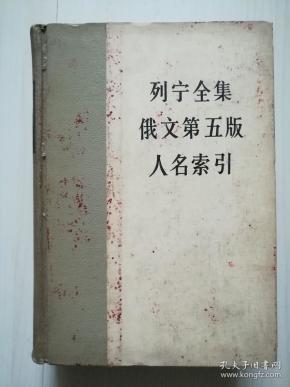 列宁全集
俄文第五版
人名索引
孔夫子旧书网